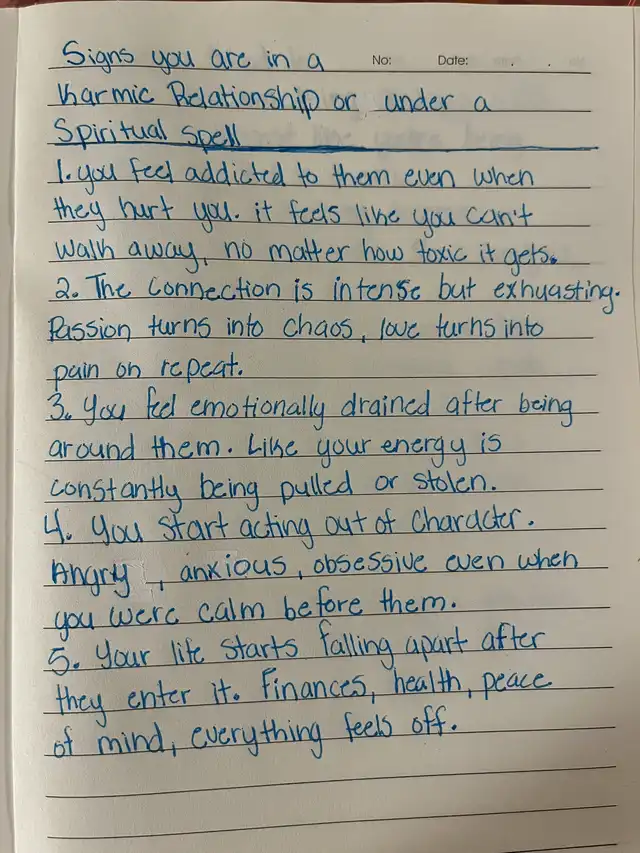 Signs you are in a No: Date: . .
Karmic Relationship or under a
Spiritual spell
1. you feel addicted to them even when
they hurt you. it feels like you can't
walk away, no matter how toxic it gets.
2. The connection is intense but exhuasting.
Passion turns into chaos, love turns into
pain on repeat.
3. You feel emotionally drained after being
around them. Like your energy is
constantly being pulled or stolen.
4. You start acting out of character.
Angry, anxious, obsessive even when
you were calm before them.
5. Your life starts falling apart after
they enter it. Finances, health, peace
of mind, everything feels off.